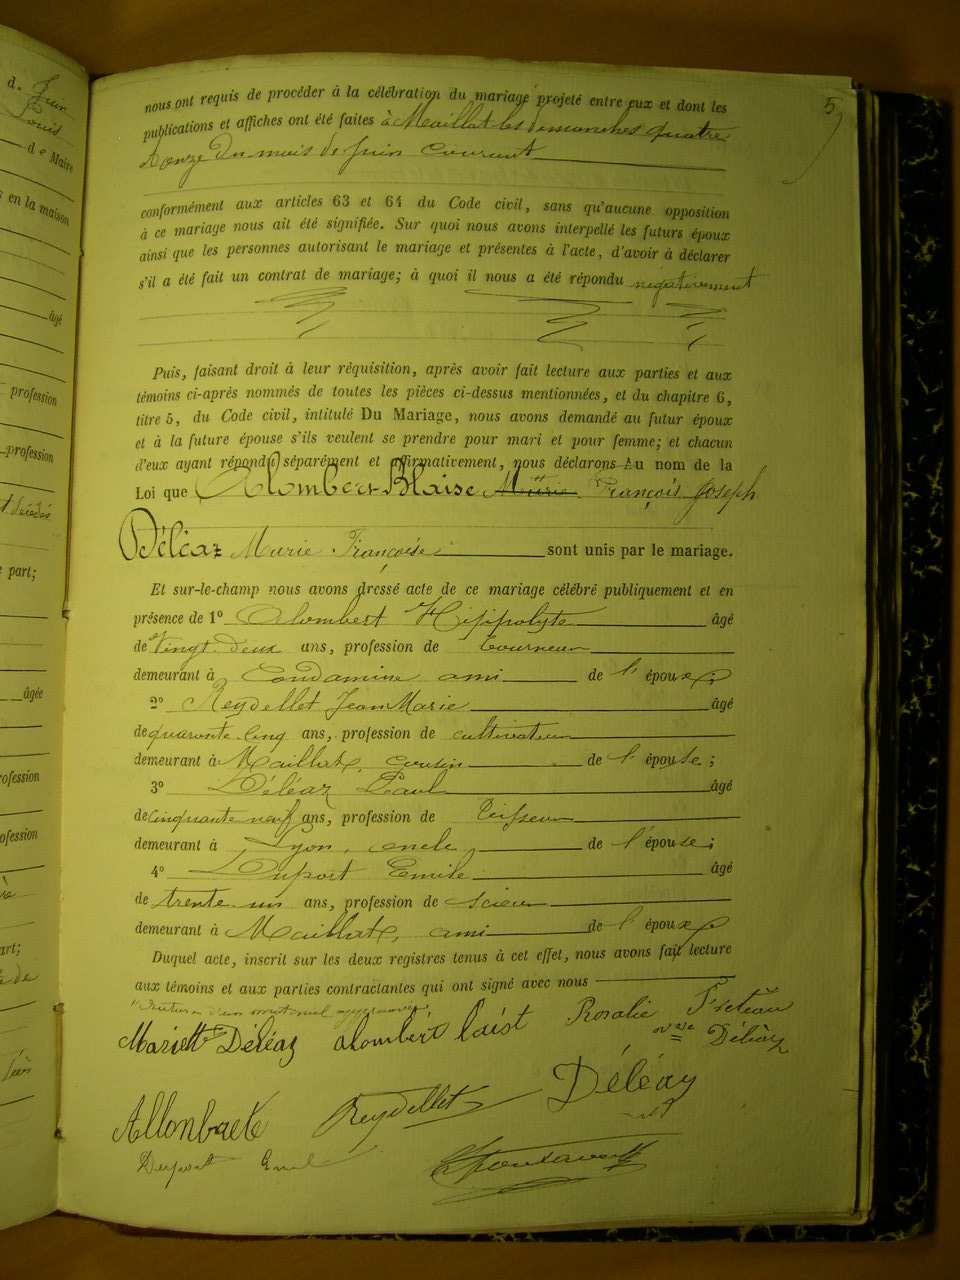 d. Jean
Louis
d e Maire
s en la maison
âgé
profession
profession
t décédé
e part;
âgée
ofession
ofession
art;
de
5
nous ont requis de procéder à la célébration du mariage projeté entre eux et dont les
publications et affiches ont été faites à Maillat les dimanches quatre
& onze du mois de Juin courant
conformément aux articles 63 et 64 du Code civil, sans qu'aucune opposition
à ce mariage nous ait été signifiée. Sur quoi nous avons interpellé les futurs époux
ainsi que les personnes autorisant le mariage et présentes à l'acte, d'avoir à déclarer
s'il a été fait un contrat de mariage; à quoi il nous a été répondu négativement
Puis, faisant droit à leur réquisition, après avoir fait lecture aux parties et aux
témoins ci-après nommés de toutes les pièces ci-dessus mentionnées, et du chapitre 6,
titre 5, du Code civil, intitulé Du Mariage, nous avons demandé au futur époux
et à la future épouse s'ils veulent se prendre pour mari et pour femme; et chacun
d'eux ayant répondu séparément et affirmativement, nous déclarons Au nom de la
Loi que Alombert Blaise Marie François Joseph
Déléaz Marie Françoise sont unis par le mariage.
Et sur-le-champ nous avons dressé acte de ce mariage célébré publiquement et en
présence de 1° Alombert Hippolyte âgé
de Vingt deux ans, profession de tourneur
demeurant à Condamine ami de l'époux;
2° Reydellet Jean Marie âgé
de quarante cinq ans, profession de cultivateur
demeurant à Maillat, cousin de l'épouse;
3° Déléaz Paul âgé
de cinquante neuf ans, profession de Tisseur
demeurant à Lyon, oncle, de l'épouse;
4° Duport Emile âgé
de trente un ans, profession de scieur
demeurant à Maillat, ami de l'époux
Duquel acte, inscrit sur les deux registres tenus à cet effet, nous avons fait lecture
aux témoins et aux parties contractantes qui ont signé avec nous
Rature d'un mot nul approuvée
Mariette Déléaz alombért Laist Rosalie Fréteau
Déléaz
Allonbrete Reydellet Déléaz
Duport Emile